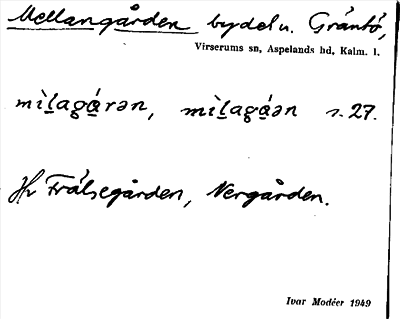 Mellangården bydel u. Gräntö,
Virserums sn, Aspelands hd, Kalm. l.
mìlagárən, mìlagáən s. 27.
Jfr Frälsegården, Nergården.
Ivar Modéer 1949